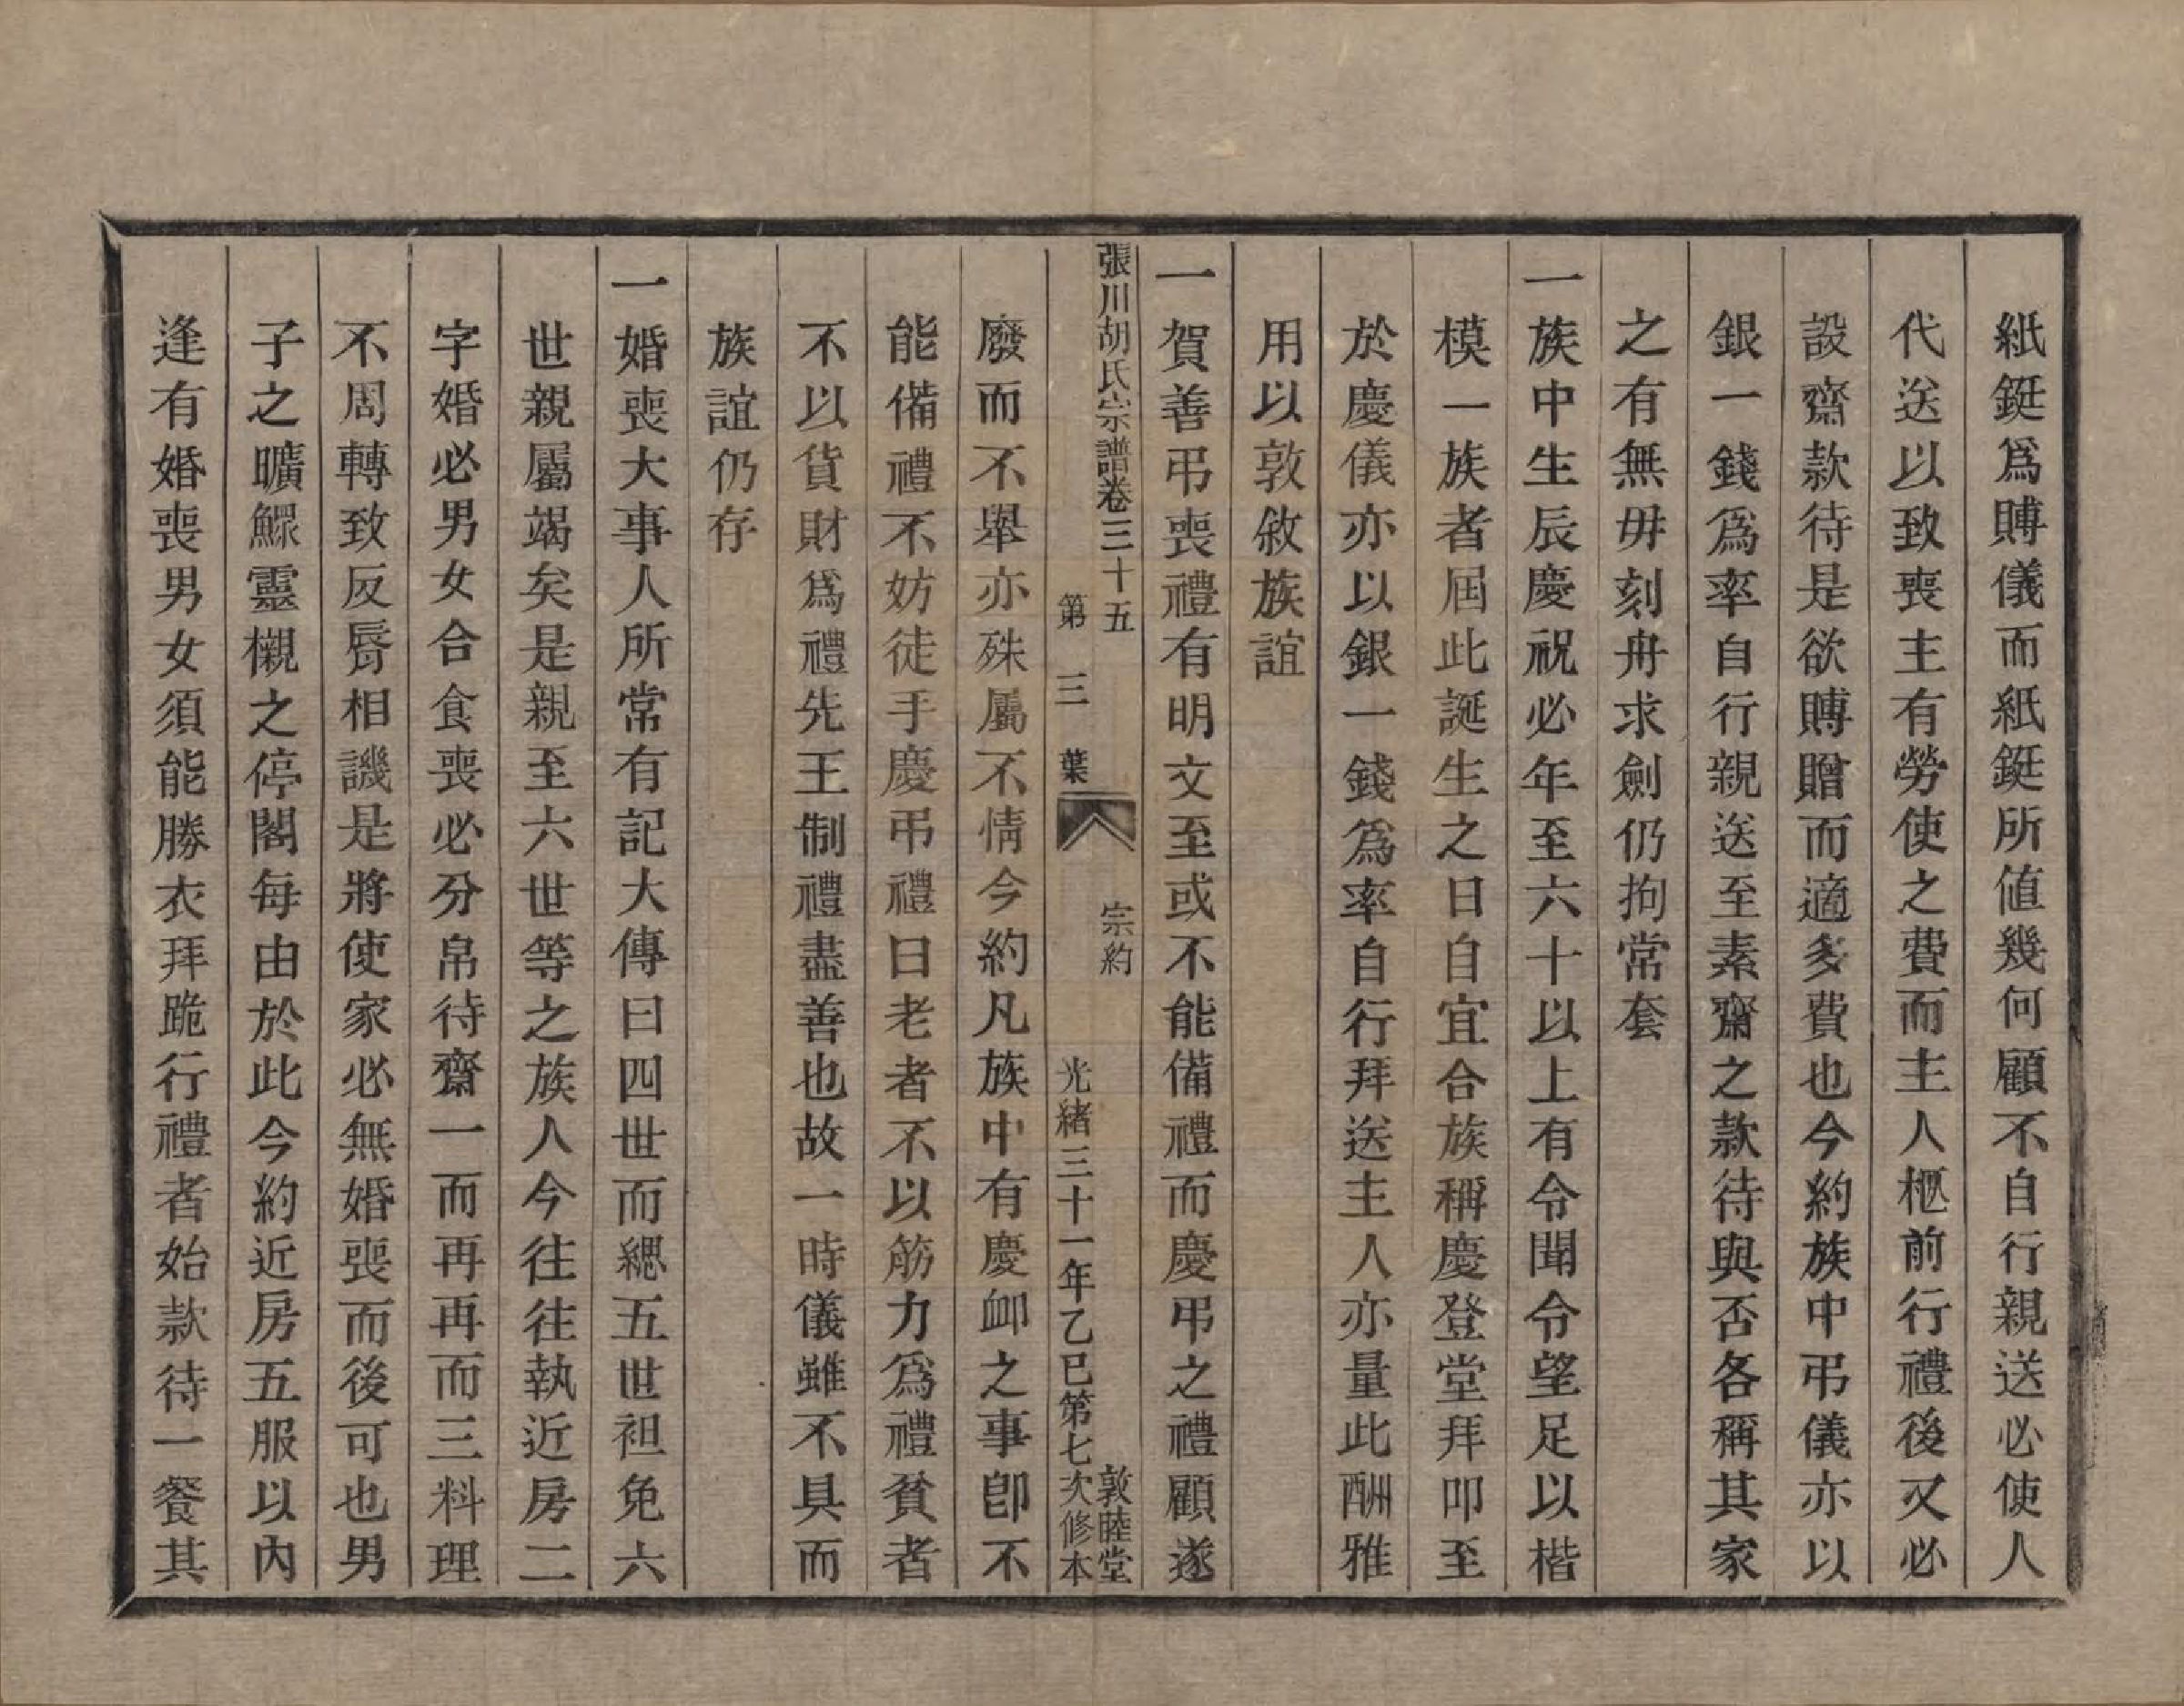 紙鋌爲賻儀而紙鋌所値幾何顧不自行親送必使人
代送以致喪主有勞使之費而主人柩前行禮後又必
設齋款待是欲賻贈而適多費也今約族中弔儀亦以
銀一錢爲率自行親送至素齋之款待與否各稱其家
之有無毋刻舟求劍仍拘常套
一族中生辰慶祝必年至六十以上有令聞令望足以楷
模一族者屆此誕生之日自宜合族稱慶登堂拜叩至
於慶儀亦以銀一錢爲率自行拜送主人亦量此酬雅
用以敦敘族誼
一賀善弔喪禮有明文至或不能備禮而慶弔之禮顧遂
張川胡氏宗譜卷三十五 宗約 敦睦堂
第三葉 光緒三十一年乙巳第七次修本
廢而不舉亦殊屬不情今約凡族中有慶卹之事卽不
能備禮不妨徒手慶弔禮曰老者不以筋力爲禮貧者
不以貨財爲禮先王制禮盡善也故一時儀雖不具而
族誼仍存
一婚喪大事人所常有記大傳曰四世而緦五世袒免六
世親屬竭矣是親至六世等之族人今往往執近房二
字婚必男女合食喪必分帛待齋一而再再而三料理
不周轉致反唇相譏是將使家必無婚喪而後可也男
子之曠鰥靈櫬之停閣每由於此今約近房五服以內
逢有婚喪男女須能勝衣拜跪行禮者始款待一餐其